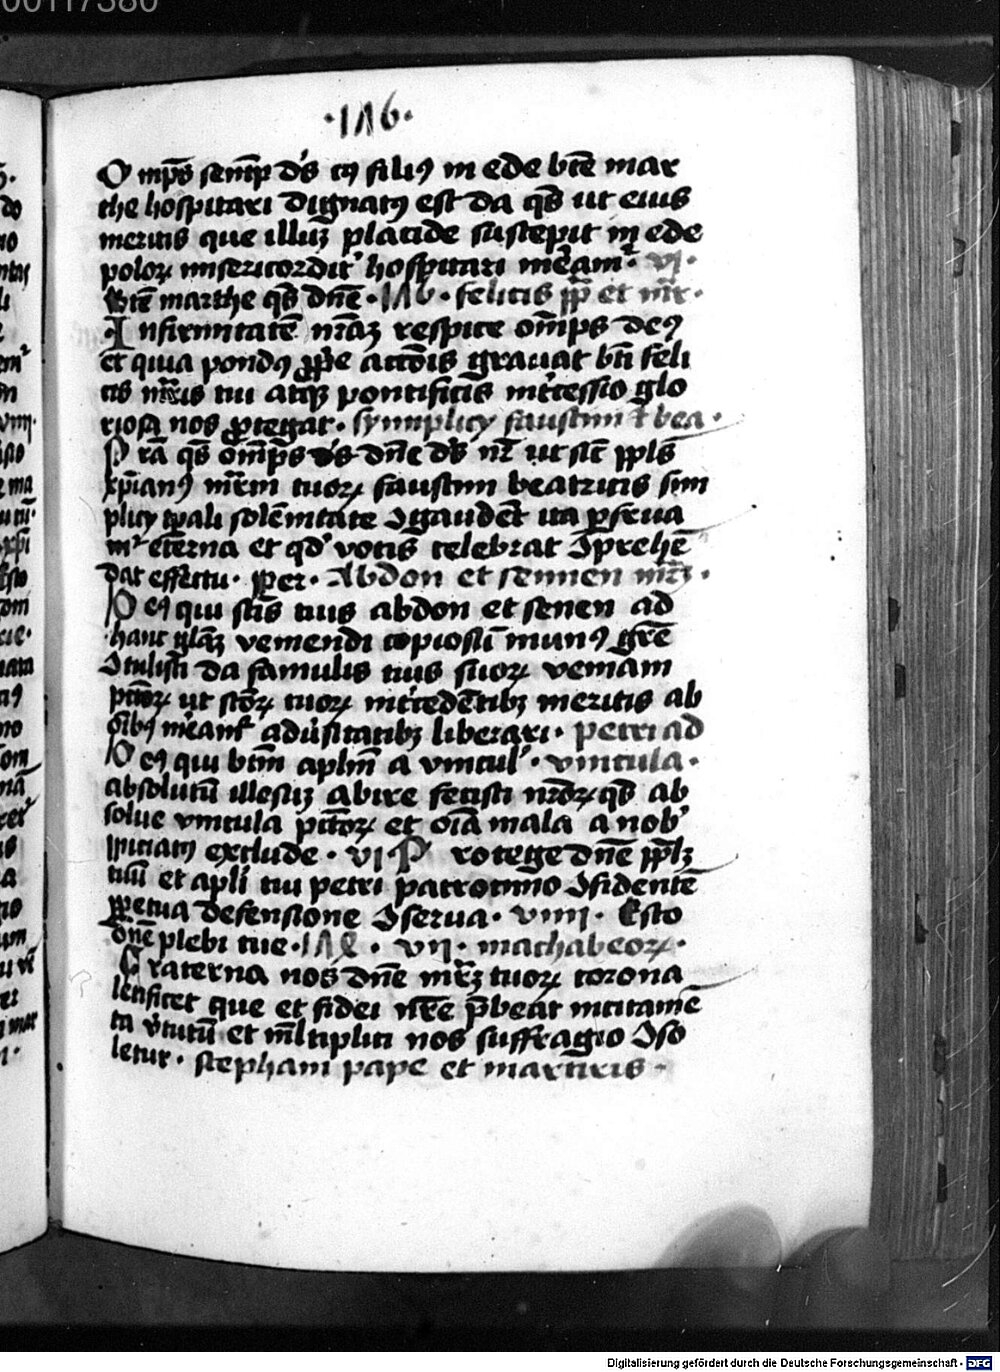 00117380
·1Λ6·
O mp̄s semꝑ ds̄ cꝯ filiꝯ in ede btē mar
the hospitari dignatꝯ est da qs̄ ut eius
meritis que illūz placide suscepit in ede
poloꝝ misericordit' hospitari meam̄ʳ · vi ·
Btē marthe qs̄ dnē · 1Λ6 · felicis pp̄ et mr̄ ·
Infirmitatē nr̄az respice om̄ps deꝯ
et quia pondꝯ ꝓpe actōis grauat bti feli
cis mr̄is tui atqꝫ pontificis intcessio glo
riosa nos ꝓtegat · symplicy faustini ⁊ bea ·
Pra qs̄ om̄ps ds̄ dnē ds̄ nr̄ ut sic̄ pp̄ls
xp̄ianꝯ mr̄m tuoꝝ faustini beatricis sim
plicy tpali solēnitate ɔgaudet ita ꝑfrua
mʳ eterna et qd' votis celebrat ɔprehē
dat effectu · per · Abdon et sennen mr̄z ·
Deꝯ qui sc̄is tuis abdon et senen ad
hanc gl̄az veniendi copiosū munꝯ gr̄e
ɔtulisti da famulis tuis suoꝝ veniam
pctōꝝ ut sc̄oꝝ tuoꝝ intcedētibꝫ meritis ab
oībꝯ meant' aduersitatibꝫ liberari · petri ad
Deꝯ qui btm̄ aplm̄ a vincul' · vincula ·
absolutū illesūz abire fecisti nr̄oꝝ qs̄ ab
solue vincula pctōꝝ et oīa mala a nob'
ꝓpiciatꝯ exclude · vi · Protege dnē pp̄lz
tuū et apli tui petri patrocinio ɔfidentē
ꝑpetua defensione ɔserua · viiii · Esto
dnē plebi tue · 1Λ8 · vii · machabeoꝝ ·
Fraterna nos dnē mr̄z tuoꝝ corona
letificet que et fidei nr̄e p̄beat incitamē
ta v̄tutū et ml̄tiplici nos suffragio ɔso
letur · stephani pape et martiris ·
Digitalisierung gefördert durch die Deutsche Forschungsgemeinschaft - DFG